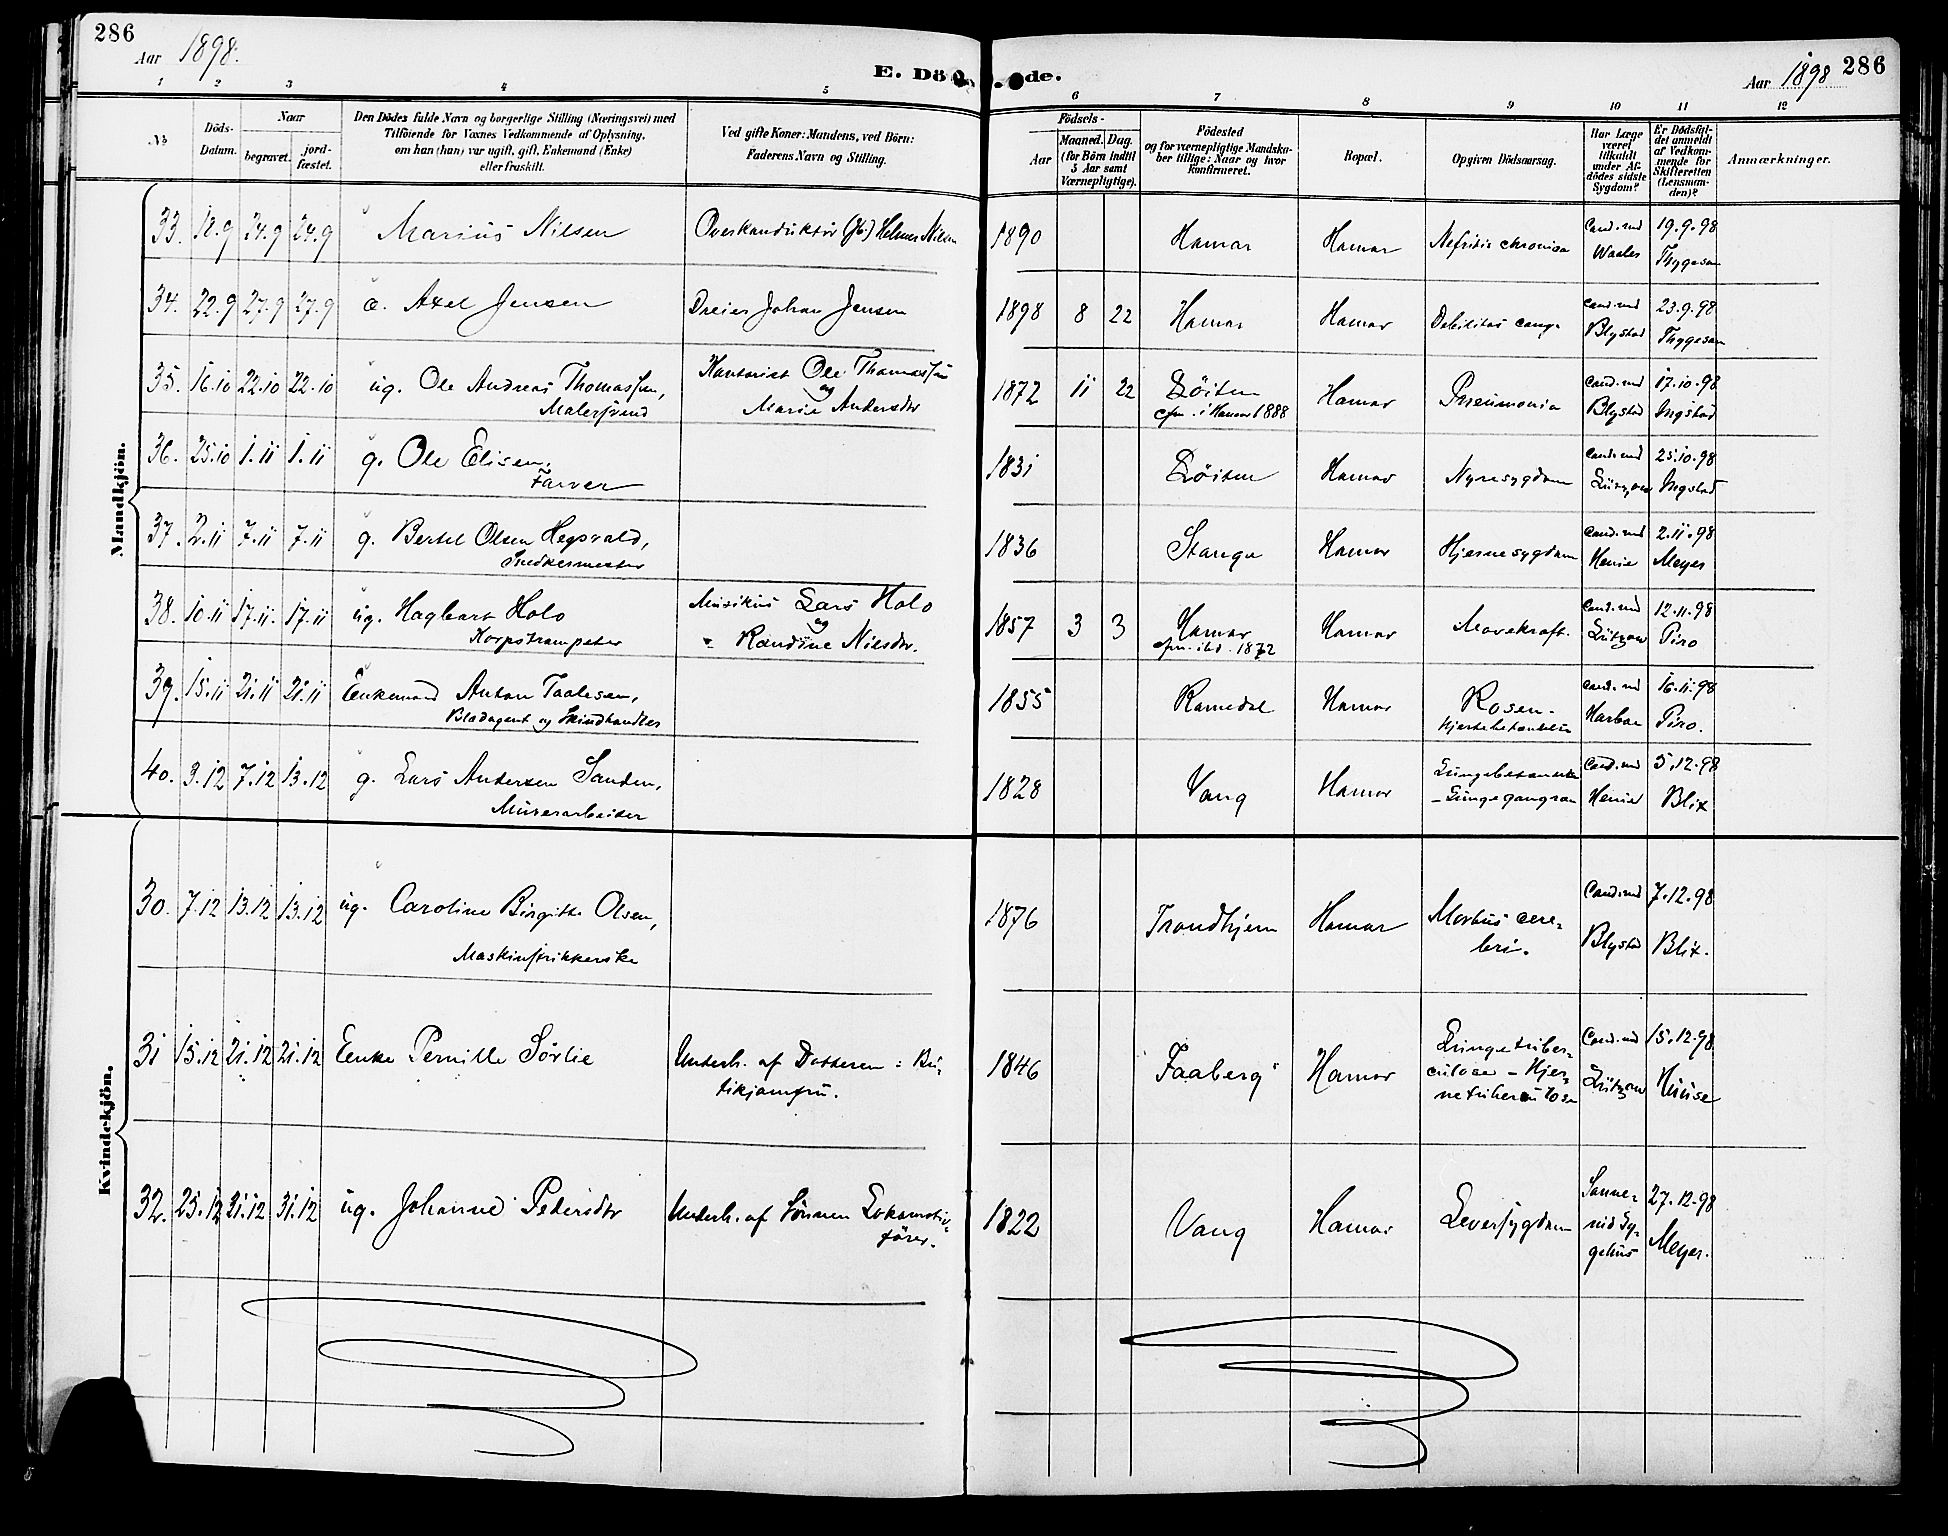 286
Aar 1898.
E. Döde.
Aar 1898
286
1 2 3 4 5 6 7 8 9 10 11 12
No
Döds-
Datum.
Naar
begravet.
jord-
fæstet.
Den Dödes fulde Navn og borgerlige Stilling (Næringsvei) med
Tilföiende for Voxnes Vedkommende af Oplysning,
om han (hun) var ugift, gift, Enkemand (Enke)
eller fraskilt.
Ved gifte Koner: Mandens, ved Börn:
Faderens Navn og Stilling.
Födsels-
Aar
Maaned. Dag.
(for Börn indtil
5 Aar samt
Værnepligtige).
Födested
og for værnepligtige Mandska-
ber tillige: Naar og hvor
konfirmeret.
Bopæl.
Opgiven Dödsaarsag.
Har Læge
været
tilkaldt
under Af-
dödes sidste
Sygdom?
Er Dödsfal-
det anmeldt
af Vedkom-
mende for
Skifteretten
(Lensman-
den)?
Anmærkninger.
Mandkjön.
33. 18.9 24.9 24.9 Marius Nilsen Overkonduktør Helmer Nilsen 1890 Hamar Hamar Nefritis chronica Cand. med Waaler 19.9.98 Thygeson
34. 22.9 27.9 27.9 Axel Jensen Dreier Johan Jensen 1898 8 22 Hamar Hamar Debilitas cong. Cand. med Blystad 23.9.98 Thygeson
35. 16.10 22.10 22.10 ug. Ole Andreas Thomassen, Kontorist Ole Thomassen 1872 11 22 Löiten Hamar Pneumonia Cand. med 17.10.98
Malersvend og Marie Andersdtr cfm. i Hamar 1888 Blystad Ingstad
36. 25.10 1.11 1.11 g. Ole Elisen, 1831 Löiten Hamar Nyresygdom Cand. med 25.10.98
Farver Lützow Ingstad
37. 2.11 7.11 7.11 g. Bertel Olsen Hegsvold, 1836 Stange Hamar Hjernesygdom Cand. med 2.11.98
Snedkermester Henie Meyer
38. 10.11 17.11. 17.11 ug. Hagbart Holo Musikus Lars Holo 1857 3 3 Hamar Hamar Mavekræft. Cand. med 12.11.98
Korpstrompeter og Randine Nilsdtr. cfm. ibd. 1872 Lützow Piro
39. 15.11 21.11 21.11 Enkemand Anton Taalesen, 1855 Romedal Hamar Rosen- Cand. med 16.11.98
Bladagent og Skindhandler Hjertebetændelse Harboe Piro.
40. 3.12 7.12 13.12 g. Lars Andersen Sanden, 1828 Vang Hamar Lungebetændelse Cand. med 5.12.98
Murerarbeider - Lungegangræn Henie Blix
Kvindekjön.
30. 7.12 13.12 13.12 ug. Caroline Birgitte Olsen, 1876 Trondhjem Hamar Morbus cere- Cand. med 7.12.98
Maskinstrikkerske bri. Blystad Blix.
31 15.12 21.12 21.12 Enke Pernille Sørlie Underh. af Datteren: Bu- 1846 Faaberg Hamar Lungetuber- Cand. med 15.12.98
tikjomfru. culose - Hjer- Lützow Huuse
netuberculose
32. 25.12 31.12 31.12 ug. Johanne Pedersdtr Underh. af Sønnen Lokomotiv- 1822 Vang Hamar Leversygdom Sanne- 27.12.98
fører. rud Sy- Meyer.
gehus